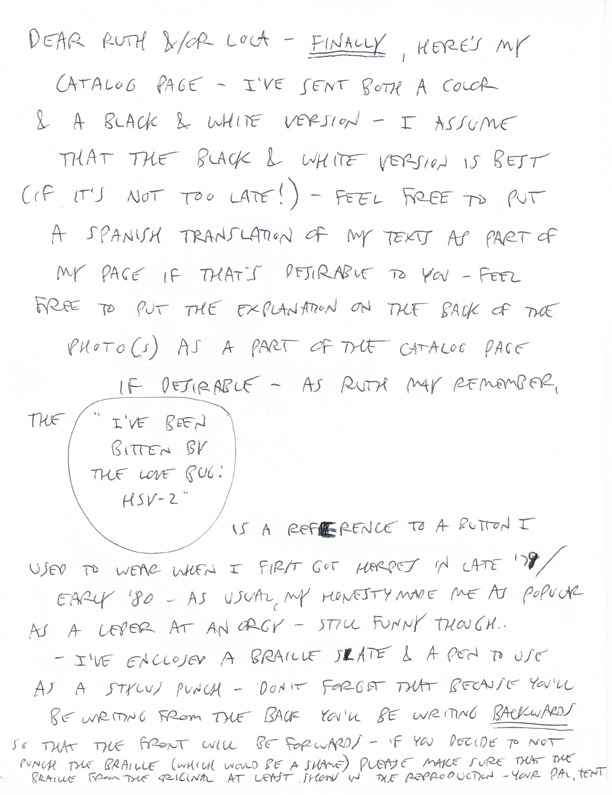 DEAR RUTH &/OR LOCA - FINALLY, HERE'S MY
CATALOG PAGE - I'VE SENT BOTH A COLOR
& A BLACK & WHITE VERSION - I ASSUME
THAT THE BLACK & WHITE VERSION IS BEST
(IF IT'S NOT TOO LATE!) - FEEL FREE TO PUT
A SPANISH TRANSLATION OF MY TEXTS AS PART OF
MY PAGE IF THAT'S DESIRABLE TO YOU - FEEL
FREE TO PUT THE EXPLANATION ON THE BACK OF THE
PHOTO(S) AS A PART OF THE CATALOG PAGE
IF DESIRABLE - AS RUTH MAY REMEMBER,
THE "I'VE BEEN
BITTEN BY
THE LOVE BUG:
HSV-2"
IS A REFERENCE TO A BUTTON I
USED TO WEAR WHEN I FIRST GOT HERPES IN LATE '79/
EARLY '80 - AS USUAL, MY HONESTY MADE ME AS POPULAR
AS A LEPER AT AN ORGY - STILL FUNNY THOUGH..
- I'VE ENCLOSED A BRAILLE SLATE & A PEN TO USE
AS A STYLUS PUNCH - DON'T FORGET THAT BECAUSE YOU'LL
BE WRITING FROM THE BACK YOU'LL BE WRITING BACKWARDS
SO THAT THE FRONT WILL BE FORWARDS - IF YOU DECIDE TO NOT
PUNCH THE BRAILLE (WHICH WOULD BE A SHAME) PLEASE MAKE SURE THAT THE
BRAILLE FROM THE ORIGINAL AT LEAST SHOWS IN THE REPRODUCTION - YOUR PAL, TENT